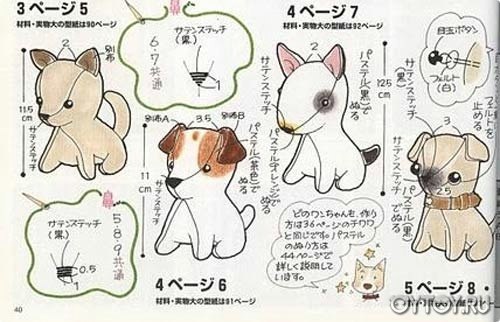 3ページ5
材料・実物大の型紙は90ページ
サテンステッチ
(黒)
6・7共通
1
4ページ7
材料・実物大の型紙は92ページ
目玉ボタン
フェルト
(白)
2
別布
11.5
cm
サテンステッチ
別布A
3.5
別布B
パステル(茶色)でぬる
11
cm
サテンステッチ
2
サテンステッチ
パステル(黒)でぬる
12.5
cm
パステル(オレンジ)でぬる
サテンステッチ
(黒)
3
フェルトを
止める
2.5
パステル(黒)
でぬる
サテンステッチ
(黒)
0.5
5・8・9共通
どのワンちゃんも、作り
方は36ページのチワワ
と同じです。パステル
のぬり方は
44ページで
詳しく説明して
います。
4ページ6
材料・実物大の型紙は91ページ
5ページ8
40
OYTOY.RU